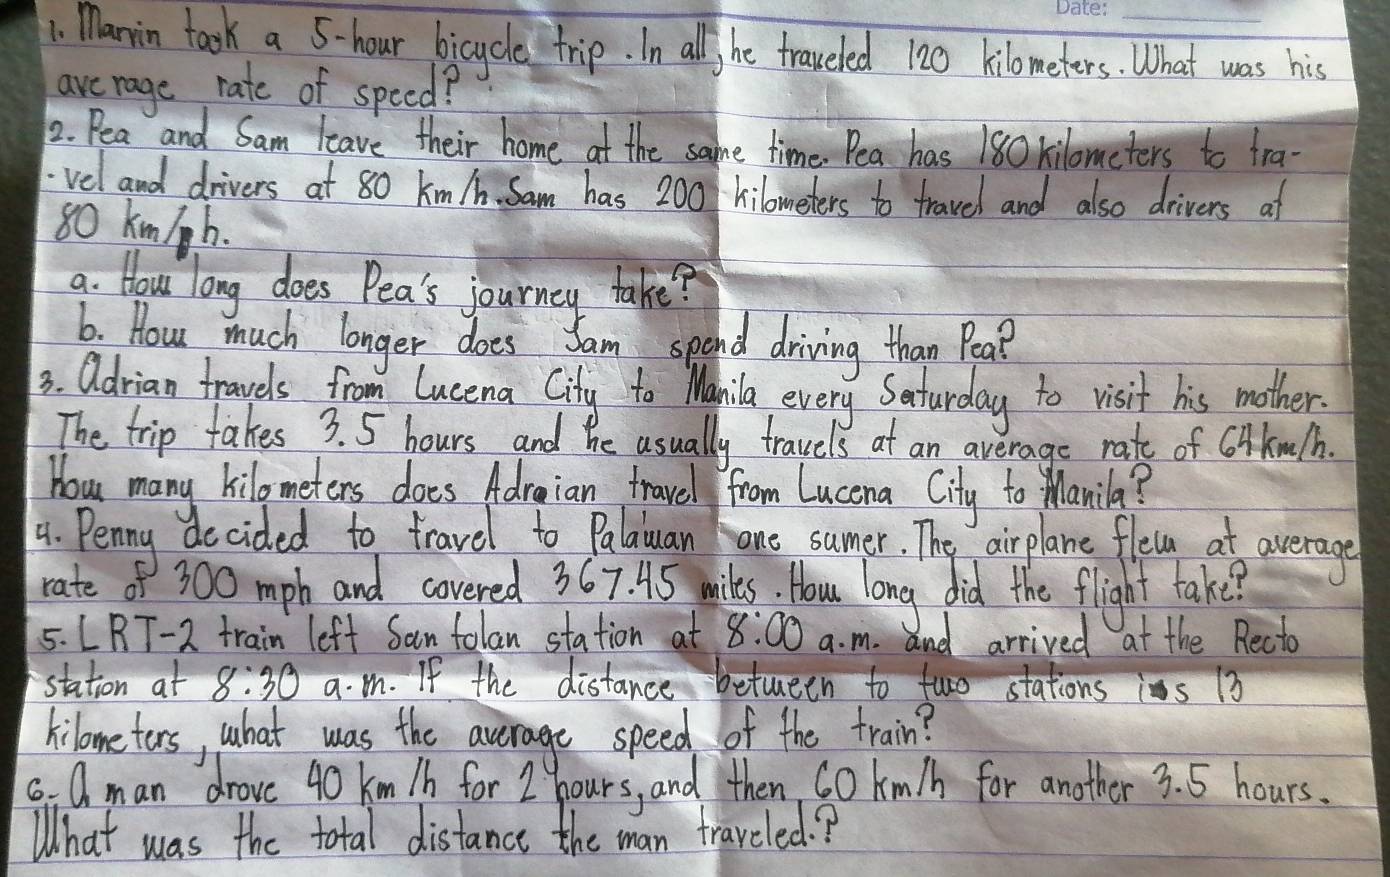 Date:
1. Marvin took a 5-hour bicycle trip. In all, he traveled 120 kilometers. What was his
average rate of speed?
2. Pea and Sam leave their home at the same time. Pea has 180 kilometers to tra-
-vel and drivers at 80 km/h. Sam has 200 kilometers to travel and also drivers at
80 km/h.
a. How long does Pea's journey take?
b. How much longer does Sam spend driving than Pea?
3. Adrian travels from Lucena City to Manila every Saturday to visit his mother.
The trip takes 3.5 hours and he usually travels at an average rate of 64 km/h.
How many kilometers does Adraian travel from Lucena City to Manila?
4. Penny decided to travel to Palawan one sumer. The airplane flew at average
rate of 300 mph and covered 367.45 miles. How long did the flight take?
5. LRT-2 train left San tolan station at 8:00 a.m. and arrived at the Recto
station at 8:30 a.m. If the distance between to two stations is 13
kilometers, what was the average speed of the train?
6. A man drove 40 km/h for 2 hours, and then 60 km/h for another 3.5 hours.
What was the total distance the man traveled.?